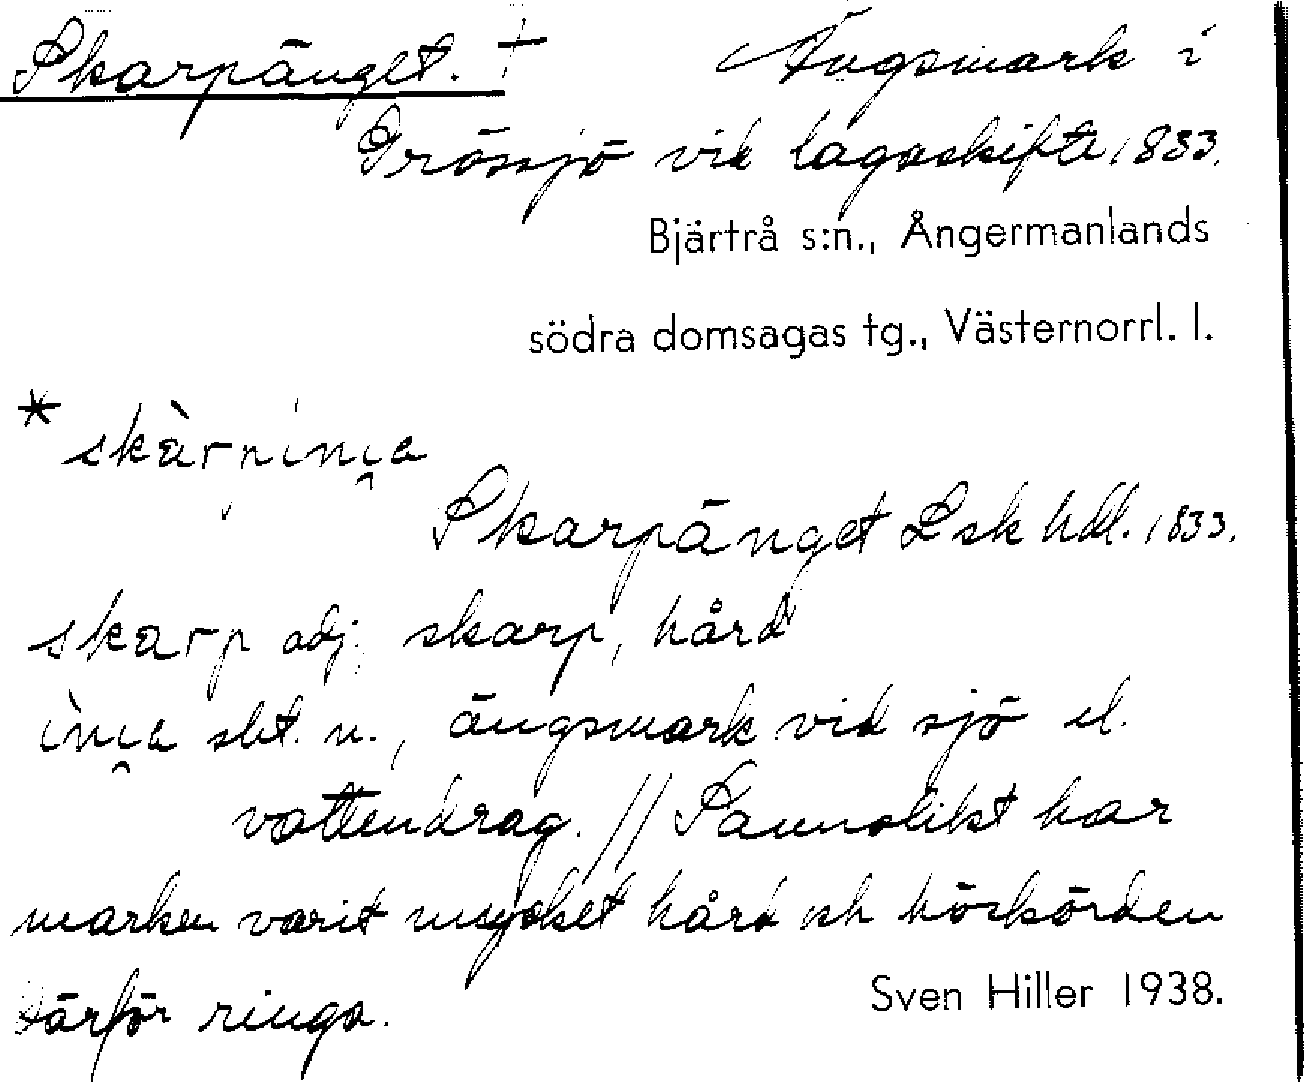 Skarpänget. † Ängsmark i
Grössjö vid lagaskifte 1833.
Bjärtrå s:n., Ångermanlands
södra domsagas tg., Västernorrl. l.
*
Skarpänget Lsk hdl. 1833.
skarp adj. skarp, hård
sbt. n., ängsmark vid sjö el.
vattendrag. // Sannolikt har
marken varit mycket hård och höskörden
därför ringa.
Sven Hiller 1938.